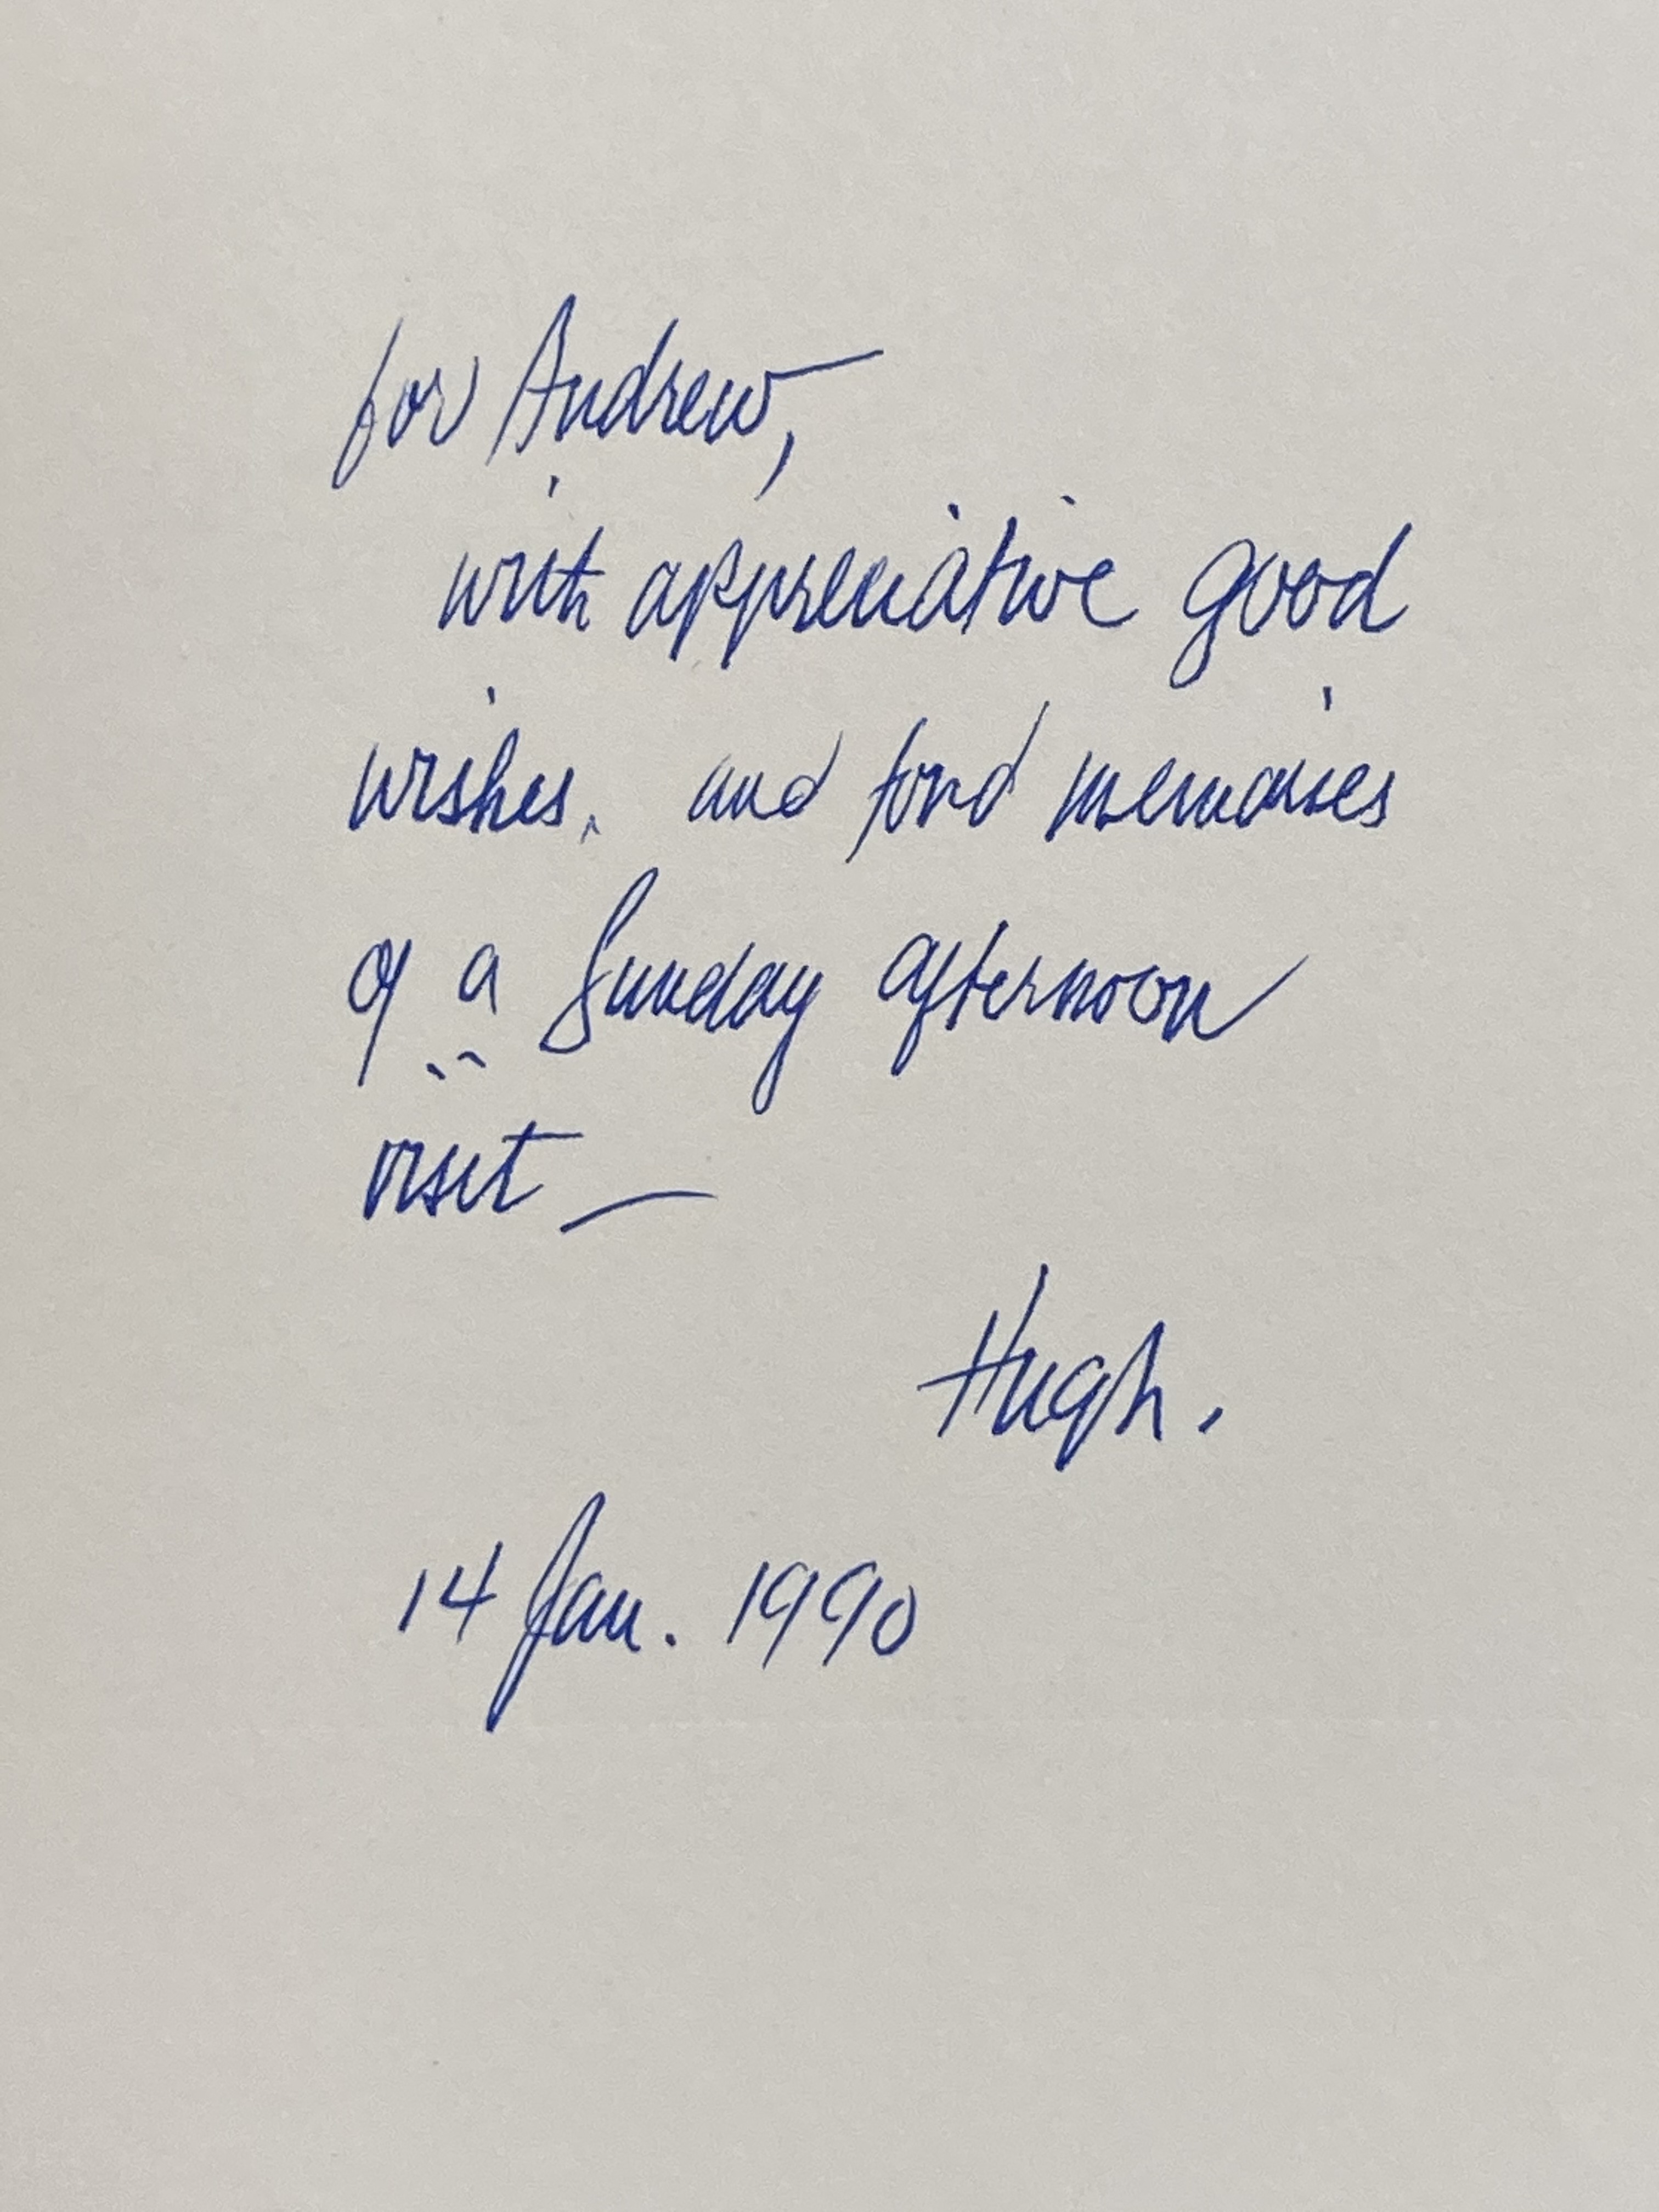 for Andrew,
with appreciative good
wishes, and fond memories
of a Sunday afternoon
visit —
Hugh.
14 Jan. 1990